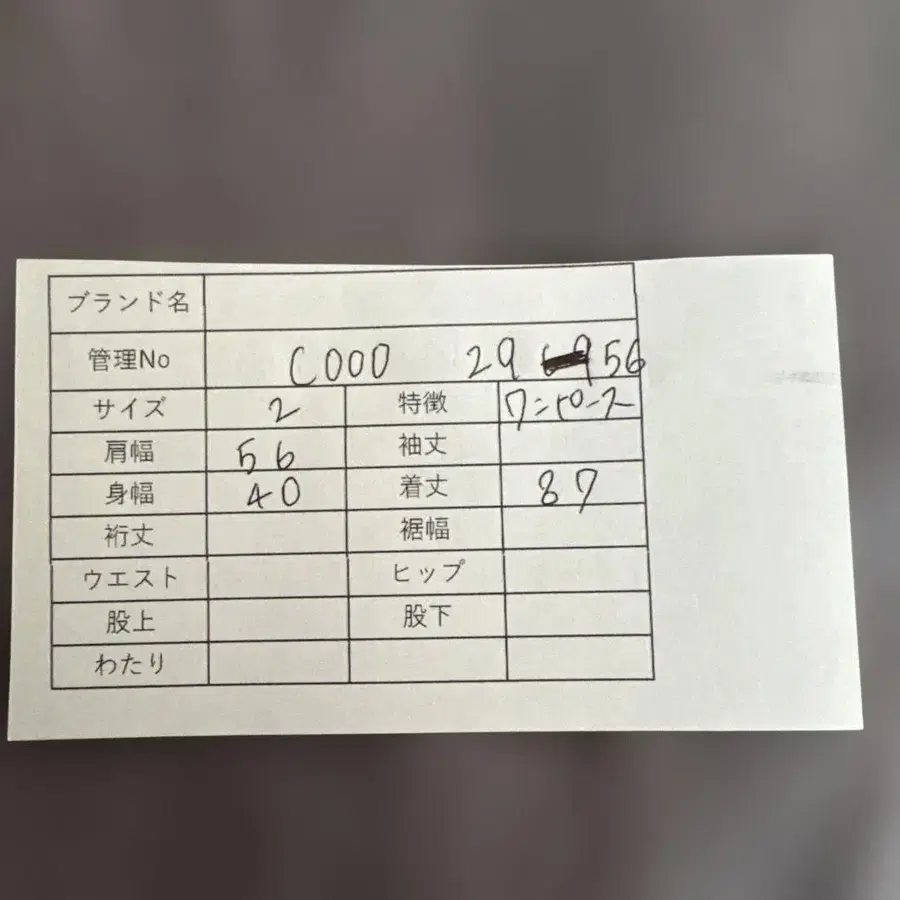 ブランド名
管理No C000 29 956
サイズ 2 特徴 ワンピース
肩幅 56 袖丈
身幅 40 着丈 87
裄丈 裾幅
ウエスト ヒップ
股上 股下
わたり